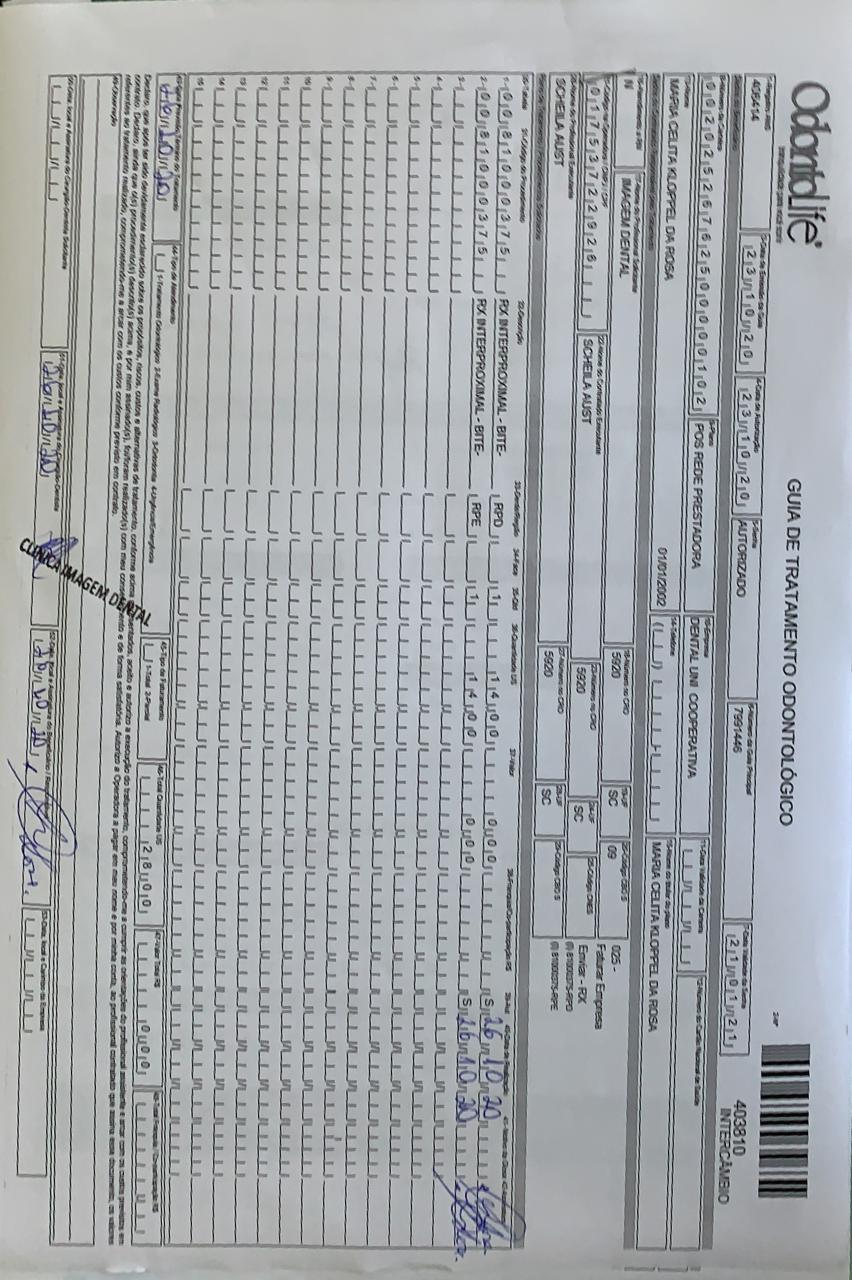 OdontoLife®
GUIA DE TRATAMENTO ODONTOLÓGICO
403810
INTERCÂMBIO
1-Registro ANS
406414
3-Data da Emissão da Guia
23/10/20
4-Data de Autorização
23/10/20
5-Senha
AUTORIZADO
6-Número da Guia Principal
7991446
7-Data Validade da Senha
21/01/21
8-Número da Carteira
00202526762500000102
9-Plano
POS REDE PRESTADORA
10-Empresa
DENTAL UNI COOPERATIVA
11-Data Validade da Carteira
12-Número do Cartão Nacional de Saúde
13-Nome
MARIA CELITA KLOPPEL DA ROSA
01/01/2002
14-Telefone
15-Nome do titular do plano
MARIA CELITA KLOPPEL DA ROSA
16-Atendimento a RN
N
17-Nome do Profissional Solicitante
IMAGEM DENTAL
18-Número no CRO
5920
19-UF
SC
20-Código CBO S
09
025 -
Faturar Empresa
Enviar - RX
(I) 81000375-RPD
(I) 81000375-RPE
21-Código na Operadora / CNPJ / CPF
01753722926
22-Nome do Contratado Executante
SCHEILA AUST
23-Número no CRO
5920
24-UF
SC
25-Código CNES
26-Nome do Profissional Executante
SCHEILA AUST
27-Número no CRO
5920
28-UF
SC
29-Código CBO S
30-Tabela 31-Código do Procedimento 32-Descrição 33-Dente/Região 34-Face 35-Qtd 36-Quantidade US 37-Valor 38-Franquia/Co-participação R$
1- 00 81000375 RX INTERPROXIMAL - BITE- RPD 1 14,00 0,00 S 26/10/20
2- 00 81000375 RX INTERPROXIMAL - BITE- RPE 1 14,00 0,00 S 26/10/20
3-
4-
5-
6-
7-
8-
9-
10-
11-
12-
13-
14-
15-
43-Data Previsão Término do Tratamento
26/10/20
44-Tipo de Atendimento
1-Tratamento Odontológico 2-Exame Radiológico 3-Ortodontia 4-Urgência/Emergência
45-Tipo de Faturamento
1-Total 2-Parcial
46-Total Quantidade US
28,00
47-Valor Total R$
0,00
48-Total Franquia / Co-participação R$
Declaro, que após ter sido devidamente esclarecido sobre os propósitos, riscos, custos e alternativas de tratamento, conforme acima apresentados, aceito e autorizo a execução do tratamento, comprometendo-me a cumprir as orientações do profissional assistente e arcar com os custos previstos em
contrato. Declaro, ainda que o(s) procedimento(s) descrito(s) acima, e por mim assinado(s), foi/foram realizado(s) com meu consentimento e de forma satisfatória. Autorizo a Operadora a pagar em meu nome e por minha conta, ao profissional contratado que assina esse documento, os valores
referentes ao tratamento realizado, comprometendo-me a arcar com os custos conforme previsto em contrato.
49-Observação
50-Data, local e Assinatura do Cirurgião-Dentista Solicitante
51-Data, local e Assinatura do Cirurgião-Dentista
26/10/20
CLINICA IMAGEM DENTAL
52-Data, local e Assinatura do Beneficiário / Responsável
26/10/20
53-Data, local e Carimbo da Empresa